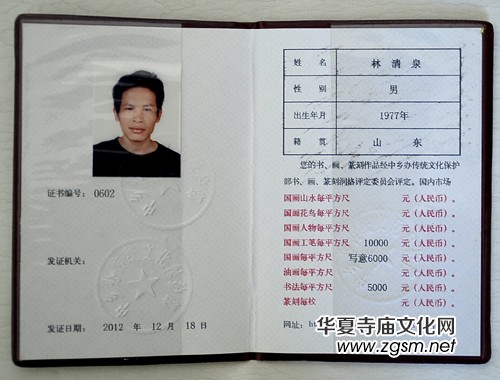 证书编号：0602
发证机关：
发证日期：2012 年 12 月 18 日
姓名 林清泉
性别 男
出生年月 1977年
籍贯 山东
您的书、画、篆刻作品经中乡办传统文化保护
部书、画、篆刻润格评定委员会评定。国内市场
国画山水每平方尺 元（人民币）。
国画花鸟每平方尺 元（人民币）。
国画人物每平方尺 元（人民币）。
国画工笔每平方尺 10000 元（人民币）。
国画每平方尺 写意6000 元（人民币）。
油画每平方尺 元（人民币）。
书法每平方尺 5000 元（人民币）。
篆刻每枚 元（人民币）。
网址：
华夏寺庙文化网
www.zgsm.net